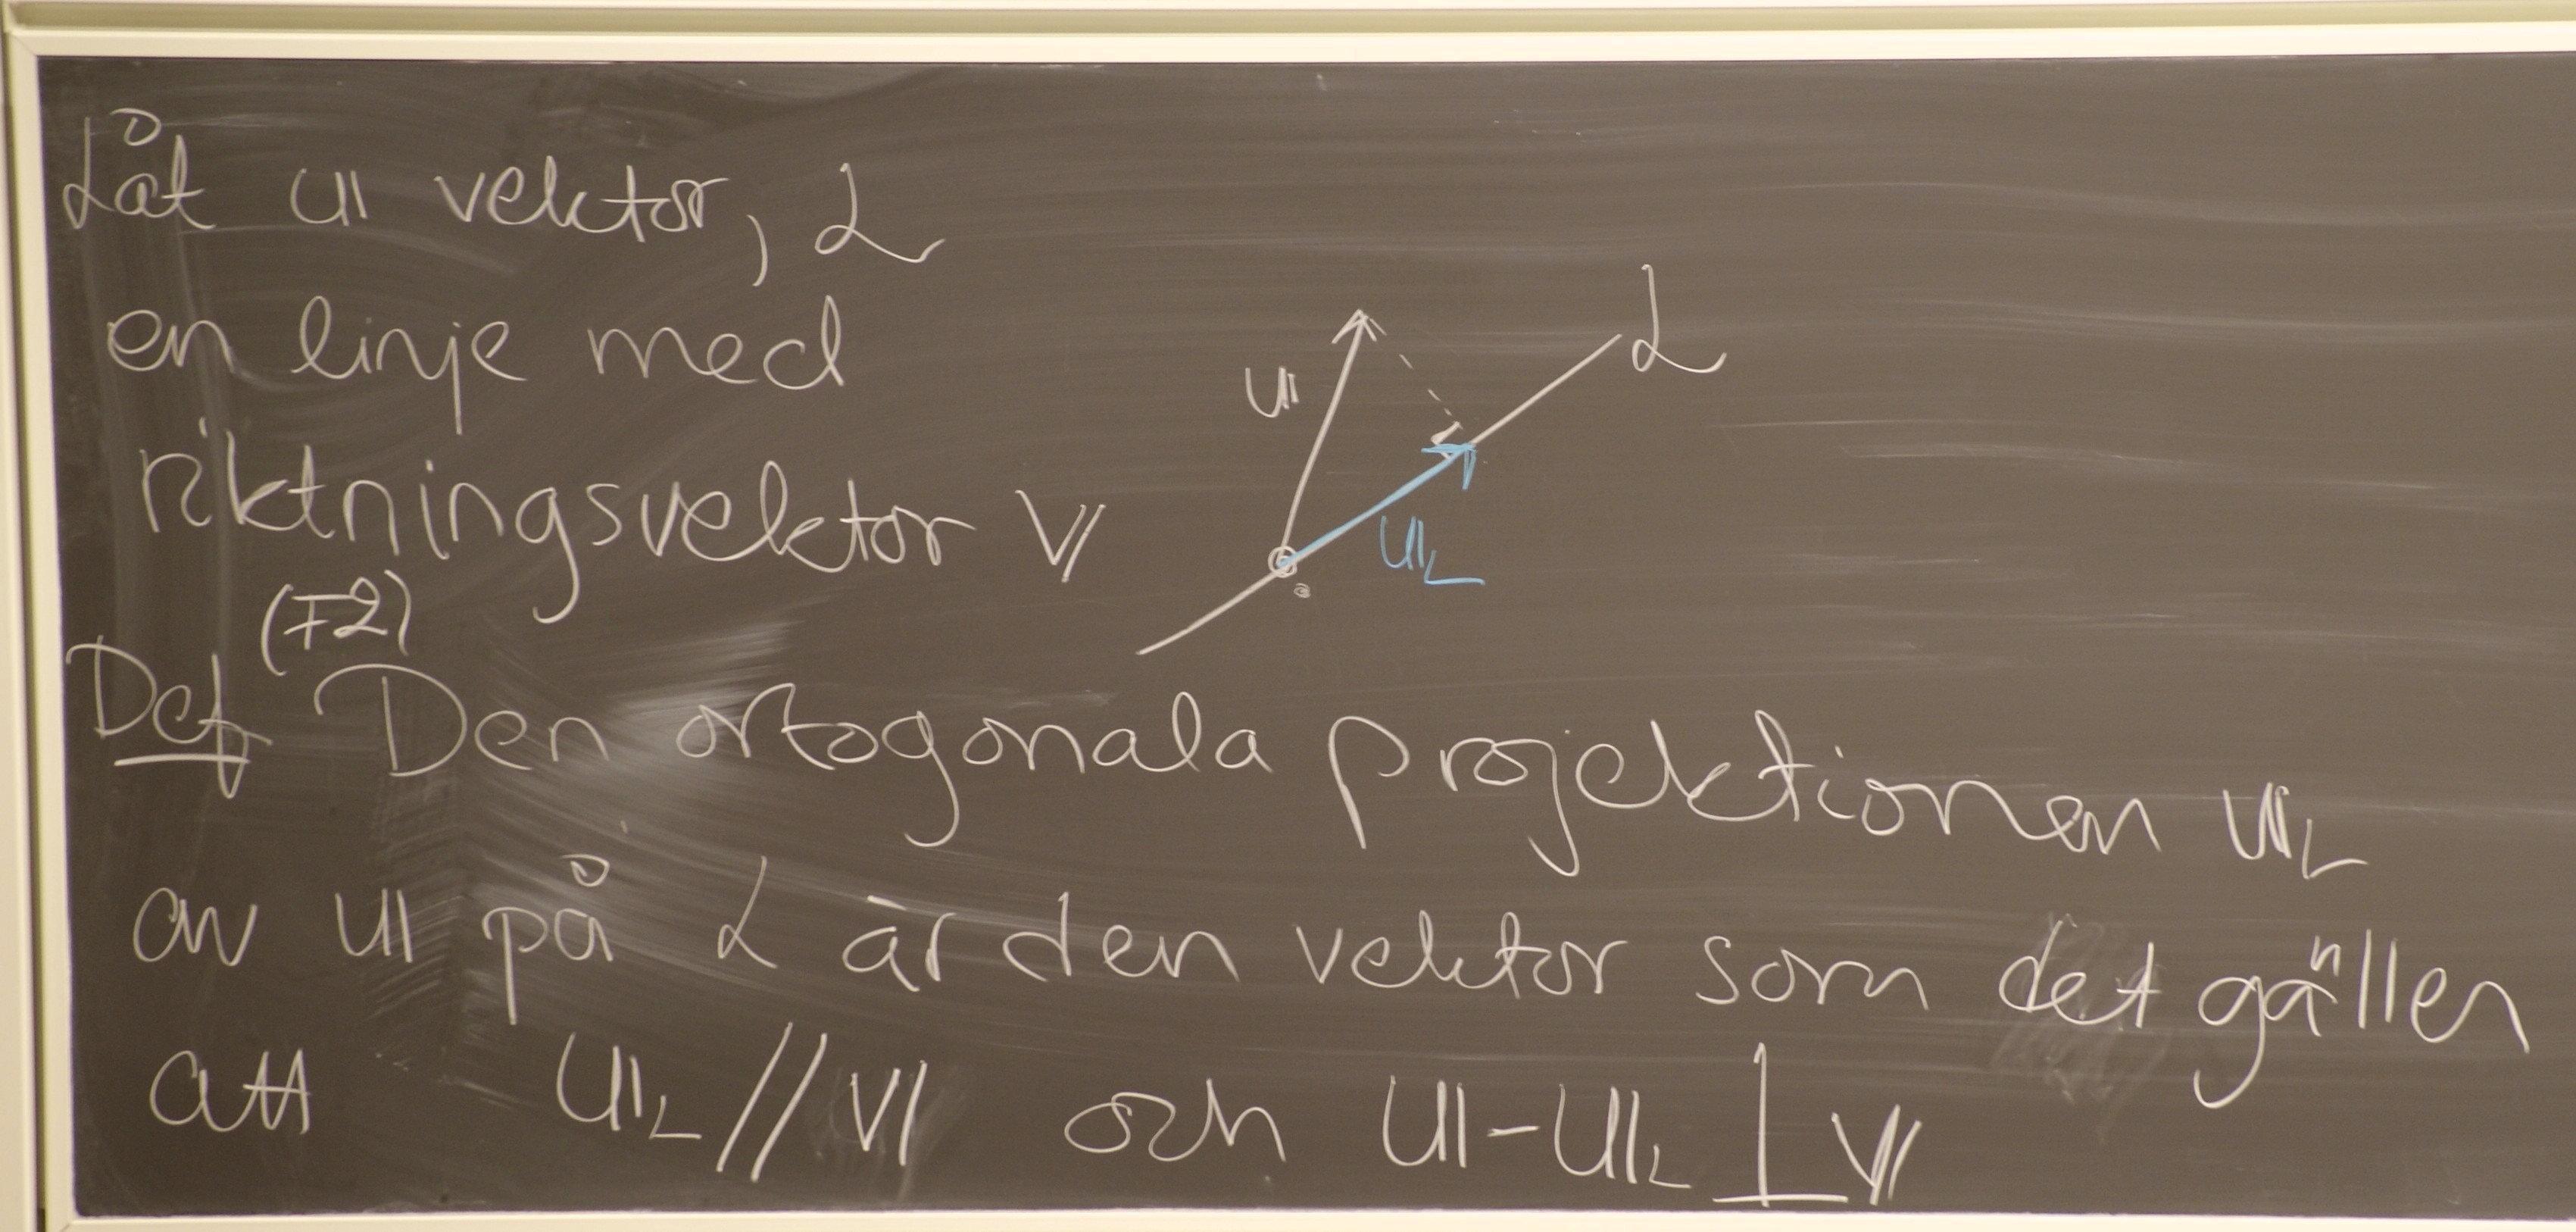 Låt u vektor, L
en linje med
riktningsvektor v
(F2)
Def Den ortogonala projektionen u_L
av u på L är den vektor som det gäller
att u_L // v och u-u_L ⊥ v
u
L
u_L